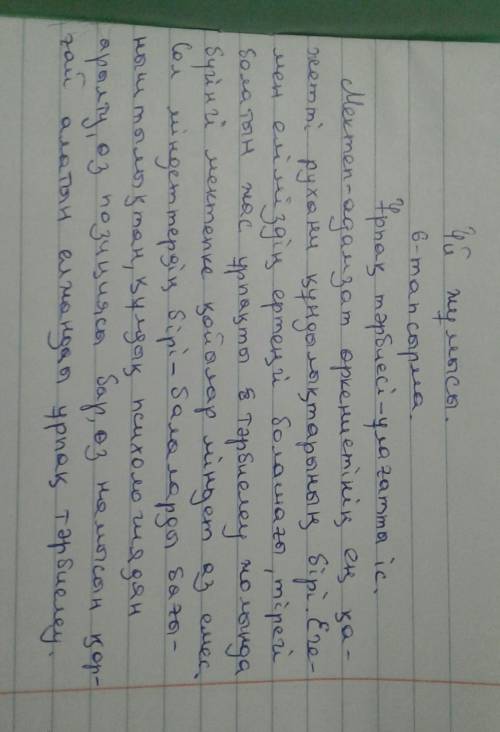 Үй жұмысы.
6-тапсырма.
Ұрпақ тәрбиесі-ұлағатты іс.
Мектеп-адамзат өркениетінің ең қа-
жетті рухани құндылықтарының бірі. Еге-
мен еліміздің ертеңгі болашағы, тірегі
болатын жас ұрпақты тәрбиелеу жолында
бүгінгі мектепке қойылар міндет аз емес.
Сол міндеттердің бірі-балаларды бағы-
ныштылықтан, құлдық психологиядан
арылту, өз позициясы бар, өз намысын қор-
ғай алатын елжанды ұрпақ тәрбиелеу.